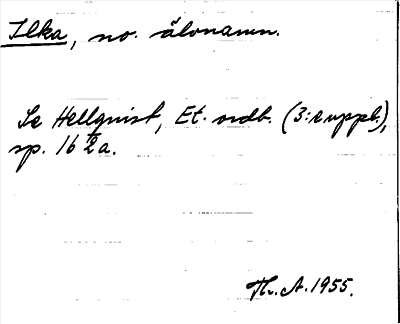 Ilka, no. älvnamn.
Se Hellquist, Et. ordb. (3:e uppl.),
sp. 16 a.
Th. A. 1955.